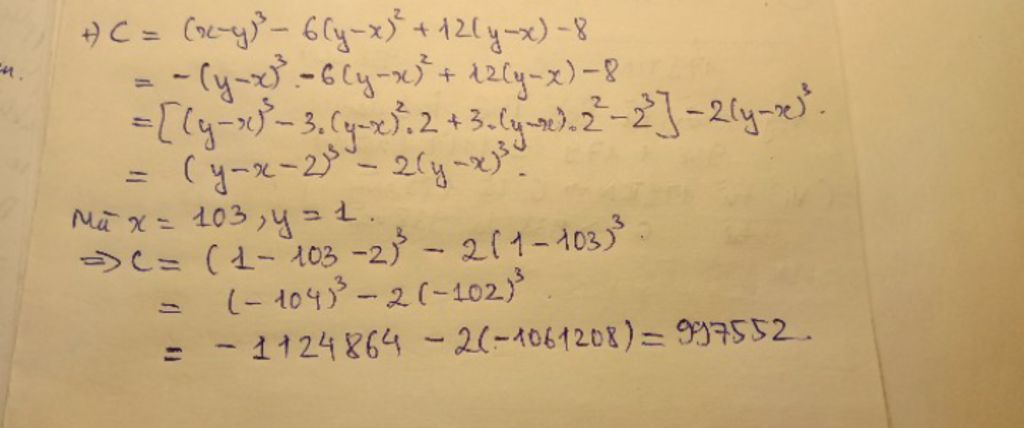 +) C = (x-y)³ - 6(y-x)² + 12(y-x) - 8
= -(y-x)³ - 6(y-x)² + 12(y-x) - 8
= [(y-x)³ - 3.(y-x)².2 + 3.(y-x).2² - 2³] - 2(y-x)³.
= (y-x-2)³ - 2(y-x)³.
Mà x = 103, y = 1.
=> C = (1 - 103 - 2)³ - 2(1 - 103)³.
= (-104)³ - 2(-102)³.
= -1124864 - 2(-1061208) = 997552.